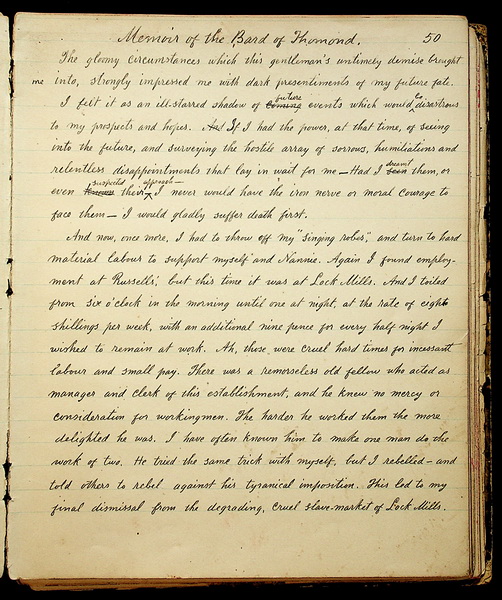 Memoir of the Bard of Thomond. 50
The gloomy circumstances which this gentleman's untimely demise brought
me into, strongly impressed me with dark presentiments of my future fate.
I felt it as an ill-starred shadow of future events which would be disastrous
to my prospects and hopes. If I had the power, at that time, of seeing
into the future, and surveying the hostile array of sorrows, humiliations and
relentless disappointments that lay in wait for me — Had I dreamt them, or
even suspected their approach — I never would have the iron nerve or moral courage to
face them — I would gladly suffer death first.
And now, once more, I had to throw off my "singing robes", and turn to hard
material labour to support myself and Nannie. Again I found employ-
ment at Russells', but this time it was at Lock Mills. And I toiled
from six o'clock in the morning until one at night, at the rate of eight
shillings per week, with an additional nine pence for every half night I
wished to remain at work. Ah, those were cruel hard times for incessant
labour and small pay. There was a remorseless old fellow who acted as
manager and clerk of this establishment, and he knew no mercy or
consideration for workingmen. The harder he worked them the more
delighted he was. I have often known him to make one man do the
work of two. He tried the same trick with myself, but I rebelled — and
told others to rebel against his tyranical imposition. This led to my
final dismissal from the degrading, cruel slave-market of Lock Mills.